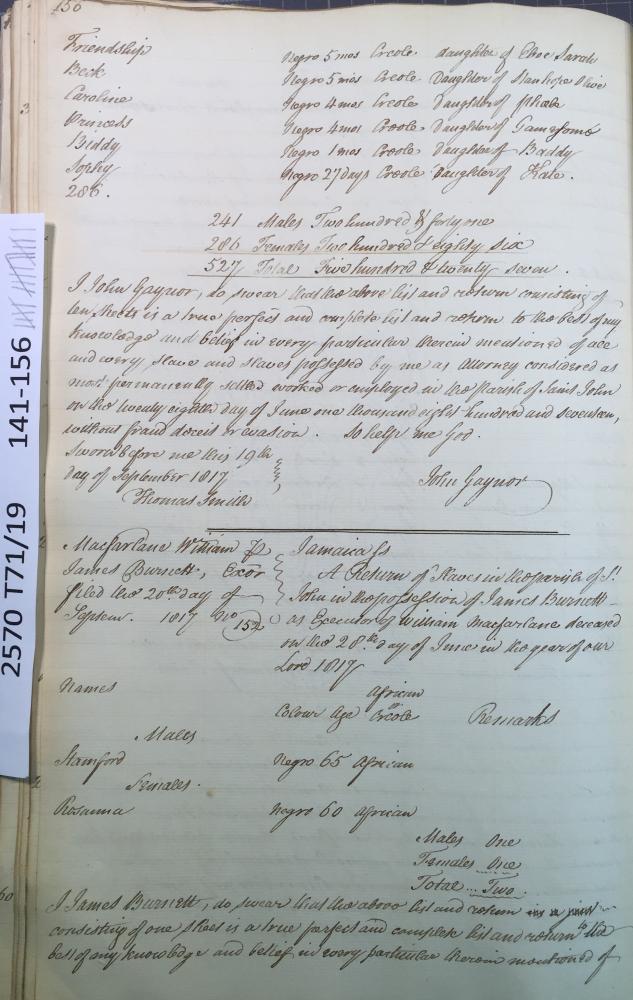 156
Friendship Negro 5 mos Creole daughter of Eboe Sarah
Beck Negro 5 mos Creole Daughter of Stanhope Olive
Caroline Negro 4 mos Creole Daughter of Phebe
Princess Negro 4 mos Creole Daughter of Gamesome
Biddy Negro 1 mos Creole Daughter of Baddy
Sophy Negro 27 days Creole Daughter of Kate.
286.
241 Males Two hundred & forty one
286 Females Two hundred & eighty six
527 Total Five hundred & twenty seven.
I John Gaynor, do swear that the above list and return consisting of
ten sheets is a true perfect and complete list and return to the best of my
knowledge and belief in every particular therein mentioned of all
and every slave and slaves possessed by me as Attorney considered as
most permanently settled worked or employed in the Parish of Saint John
on the twenty eighth day of June one thousand eight hundred and seventeen,
without fraud deceit or evasion. So help me God.
Sworn before me this 19th
day of September 1817
John Gaynor
Thomas Smith
Macfarlane William P
James Burnett, Exor
filed the 20th day of
Septem. 1817 No 152
Jamaica Ss
A Return of Slaves in the parish of St.
John in the possession of James Burnett
as Executor of William Macfarlane deceased
on the 28th day of June in the year of our
Lord 1817
Names Colour Age African or Creole Remarks
Males
Stamford Negro 65 African
Females.
Rosanna Negro 60 African
Males One
Females One
Total ... Two.
I James Burnett, do swear that the above list and return
consisting of one sheet is a true perfect and complete list and return to the
best of my knowledge and belief in every particular therein mentioned of
2570 T71/19 141-156
3
60